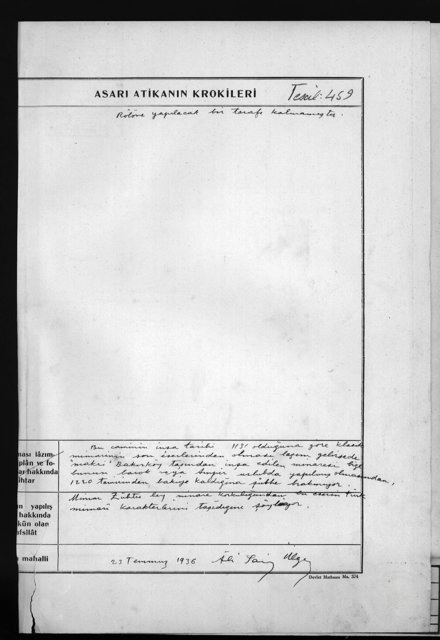 ASARI ATİKANIN KROKİLERİ
Tescil: 459
Rölöve yapılacak bir tarafı kalmamıştır.
ması lâzım
plân ve fo-
ar hakkında
ihtar
Bu caminin inşa tarihi 1131 olduğuna göre klasik
mimarinin son eserlerinden olması lazım gelirse de
Bakırköy taşından inşa edilen minaresi
bunun barok veya ampir uslubda yapılmış olmasından,
1220 tamirinden bakiye kaldığına şübhe bırakmıyor.
ın yapılış
hakkında
kün olan
afsilât
Mimar Zühtü bey minare bu eserin Türk
mimari karakterlerini taşıdığını söylüyor.
mahalli
23 Temmuz 1936 Ali Saim Ülgen
Devlet Matbaası Ma. 374